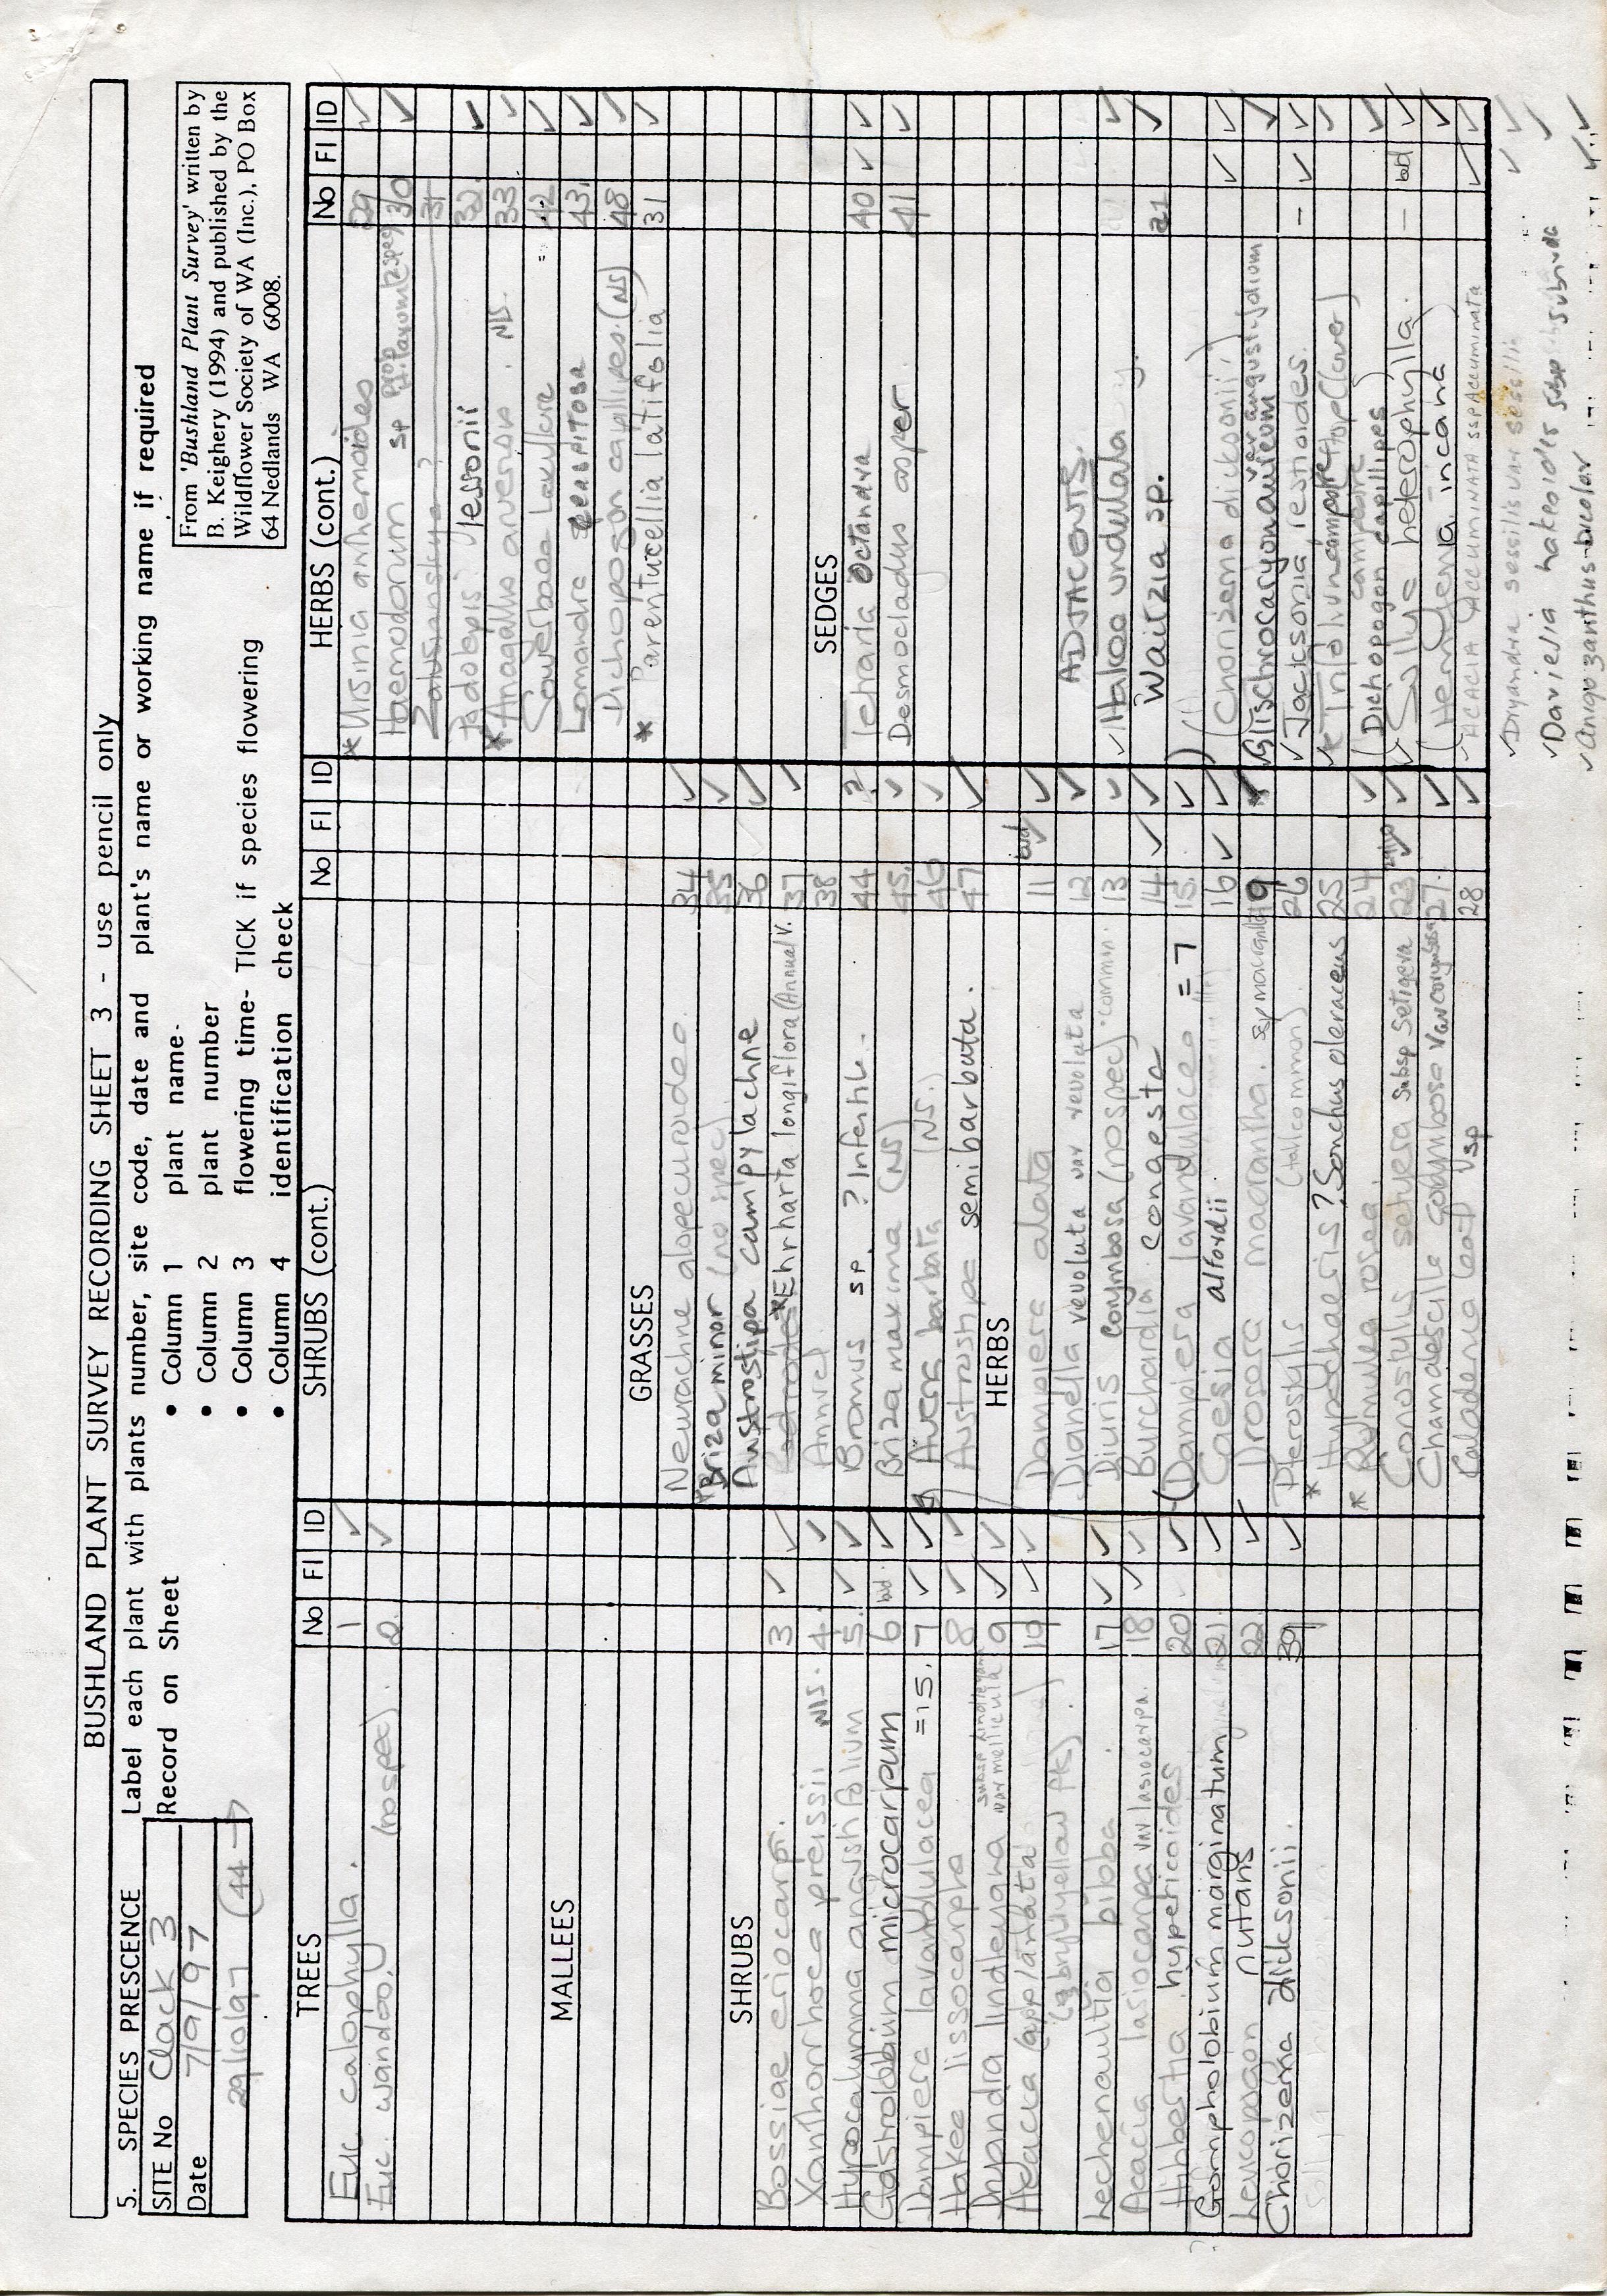 BUSHLAND PLANT SURVEY RECORDING SHEET 3 - use pencil only
5. SPECIES PRESCENCE
Label each plant with plants number, site code, date and plant's name or working name if required
SITE No Clack 3
Date 7/9/97
29/10/97 (44 →
Record on Sheet
• Column 1 plant name-
• Column 2 plant number
• Column 3 flowering time- TICK if species flowering
• Column 4 identification check
From 'Bushland Plant Survey' written by
B. Keighery (1994) and published by the
Wildflower Society of WA (Inc.), PO Box
64 Nedlands WA 6008.
TREES No Fl ID
Euc calophylla. 1 ✓
Euc. wandoo. (no spec) 2. ✓
MALLEES
SHRUBS
Bossiae eriocarp. 3 ✓ ✓
Xanthorrhoea preissii N/S. 4. ✓
Hypocalymma angustifolium 5. ✓ ✓
Gastrolobium microcarpum 6 bud. ✓
Dampiera lavandulacea =15. 7 ✓ ✓
Hakea lissocarpha 8 ✓ ✓
Dryandra lindleyana subsp lindleyana var mellicula 9 ✓ ✓
Acacia (applanata) 10 ✓ ✓
Lechenaultia biloba. 17 ✓ ✓
Acacia lasiocarpa var lasiocarpa. 18 ✓ ✓
Hibbertia hypericoides 20 ✓
Gompholobium marginatum 21 ✓
Leucopogon nutans 22 ✓
Chorizema dicksonii. 39 ✓
SHRUBS (cont.) No Fl ID
GRASSES
Neurachne alopecuroidea. 34 ✓
*Briza minor (no spec) 35 ✓
Austrostipa campylachne 36 ✓
*Ehrharta longiflora (Annual V. 37 ✓
38
Bromus sp. ? Infertile. 44 ?
Briza maxima (NS) 45. ✓
Avena barbata (NS.) 46 ✓
Austrostipa semibarbata. 47 ✓
HERBS
Dampiera alata 11 bud ✓ ✓
Dianella revoluta var revoluta 12 ✓
Diuris corymbosa (no spec) common. 13 ✓
Burchardia congesta 14 ✓ ✓
(Dampiera lavandulacea = 7 15. ✓ )
Caesia alfordii 16 ✓ ✓
Drosera macrantha. ssp macrantha 19
Pterostylis (tall common) 26
* Hypochaeris ? Sonchus oleraceus 25
* Romulea rosea. 24 ✓
Conostylis setigera subsp setigera 23 ✓ ✓
Chamaescilla corymbosa var corymbosa 27. ✓
Caladenia leaf sp 28 ✓
HERBS (cont.) No Fl ID
*Ursinia anthemoides 29 ✓
Haemodorum sp 30 ✓
31
Podolepis lessonii 32. ✓
*Anagallis arvensis. N/S. 33 ✓
Sowerbaea laxiflora 42 ✓
Lomandra caespitosa 43. ✓
Dichopogon capillipes. (NS) 48 ✓
* Parentucellia latifolia 31 ✓
SEDGES
Tetraria octandra 40 ✓ ✓
Desmocladus asper. 41 ✓
ADJACENTS.
✓ Hakea undulata ✓
Waitzia sp. 21 ✓
(Chorizema dicksonii) ✓ ✓
Glischrocaryon aureum var angustifolium ✓
✓ Jacksonia restioides. – ✓ ✓
Dichopogon capillipes ✓
✓ Sollya heterophylla. – bud ✓
(Hemigenia incana ✓
✓ ACACIA ACCUMINATA SSP ACCUMINATA ✓ ✓
✓ Dryandra sessilis var sessilis ✓ ✓
✓ Daviesia hakeoides ssp subnuda ✓
✓ Anigozanthus bicolor ✓ ✓